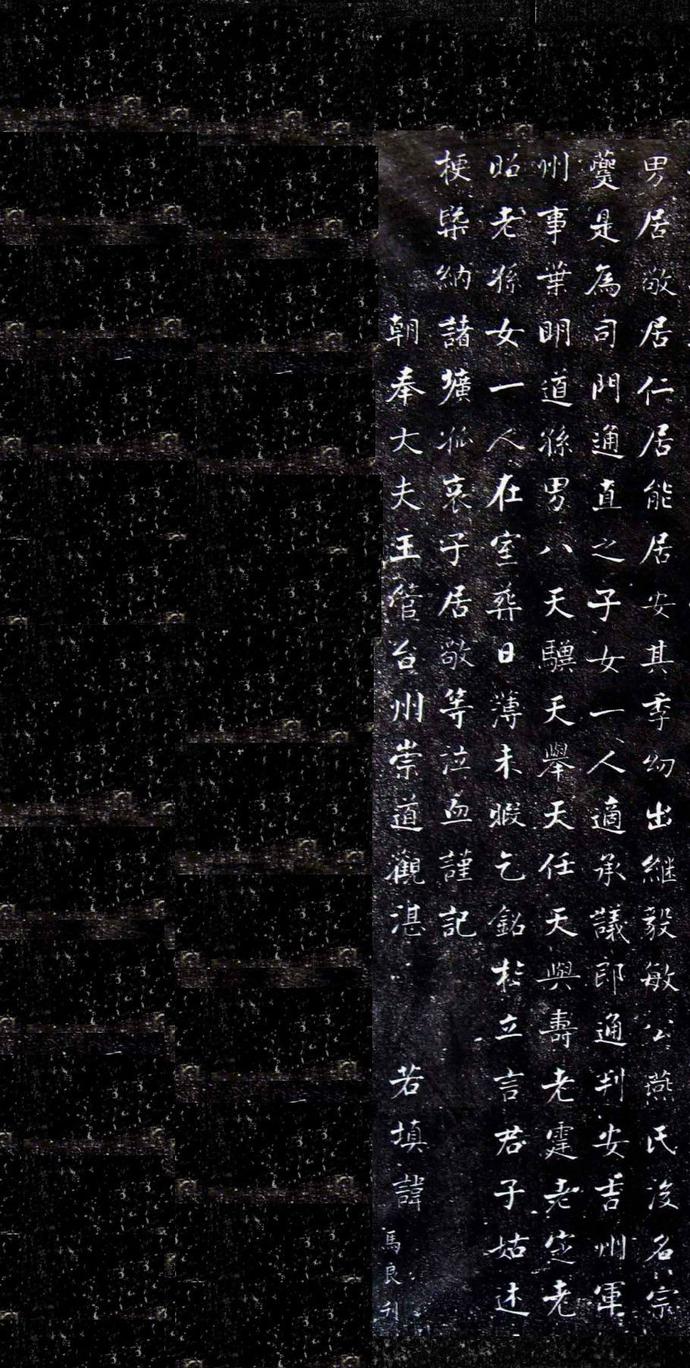 男居敬居仁居能居安其季幼出継毅敏公燕氏没名宗
夔是為司門通直之子女一人適承議郎通判安吉州軍
州事葉明道孫男八天驥天舉天任天與壽老霆老定老
昭老孫女一人在室葬日薄未暇乞銘於立言君子姑述
梗槩納諸壙孤哀子居敬等泣血謹記
朝奉大夫主管台州崇道觀湛 若填諱
馬良刊